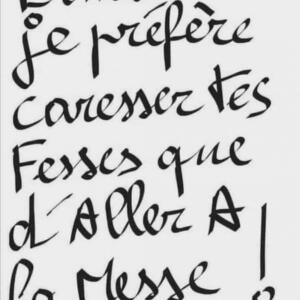 je préfère
caresser tes
Fesses que
d'Aller A
la Messe !